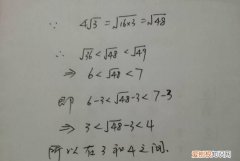 ∵ 4√3 = √16×3 = √48
∴ √36 < √48 < √49
⇒ 6 < √48 < 7
即 6-3 < √48-3 < 7-3
⇒ 3 < √48-3 < 4
所以在3和4之间.